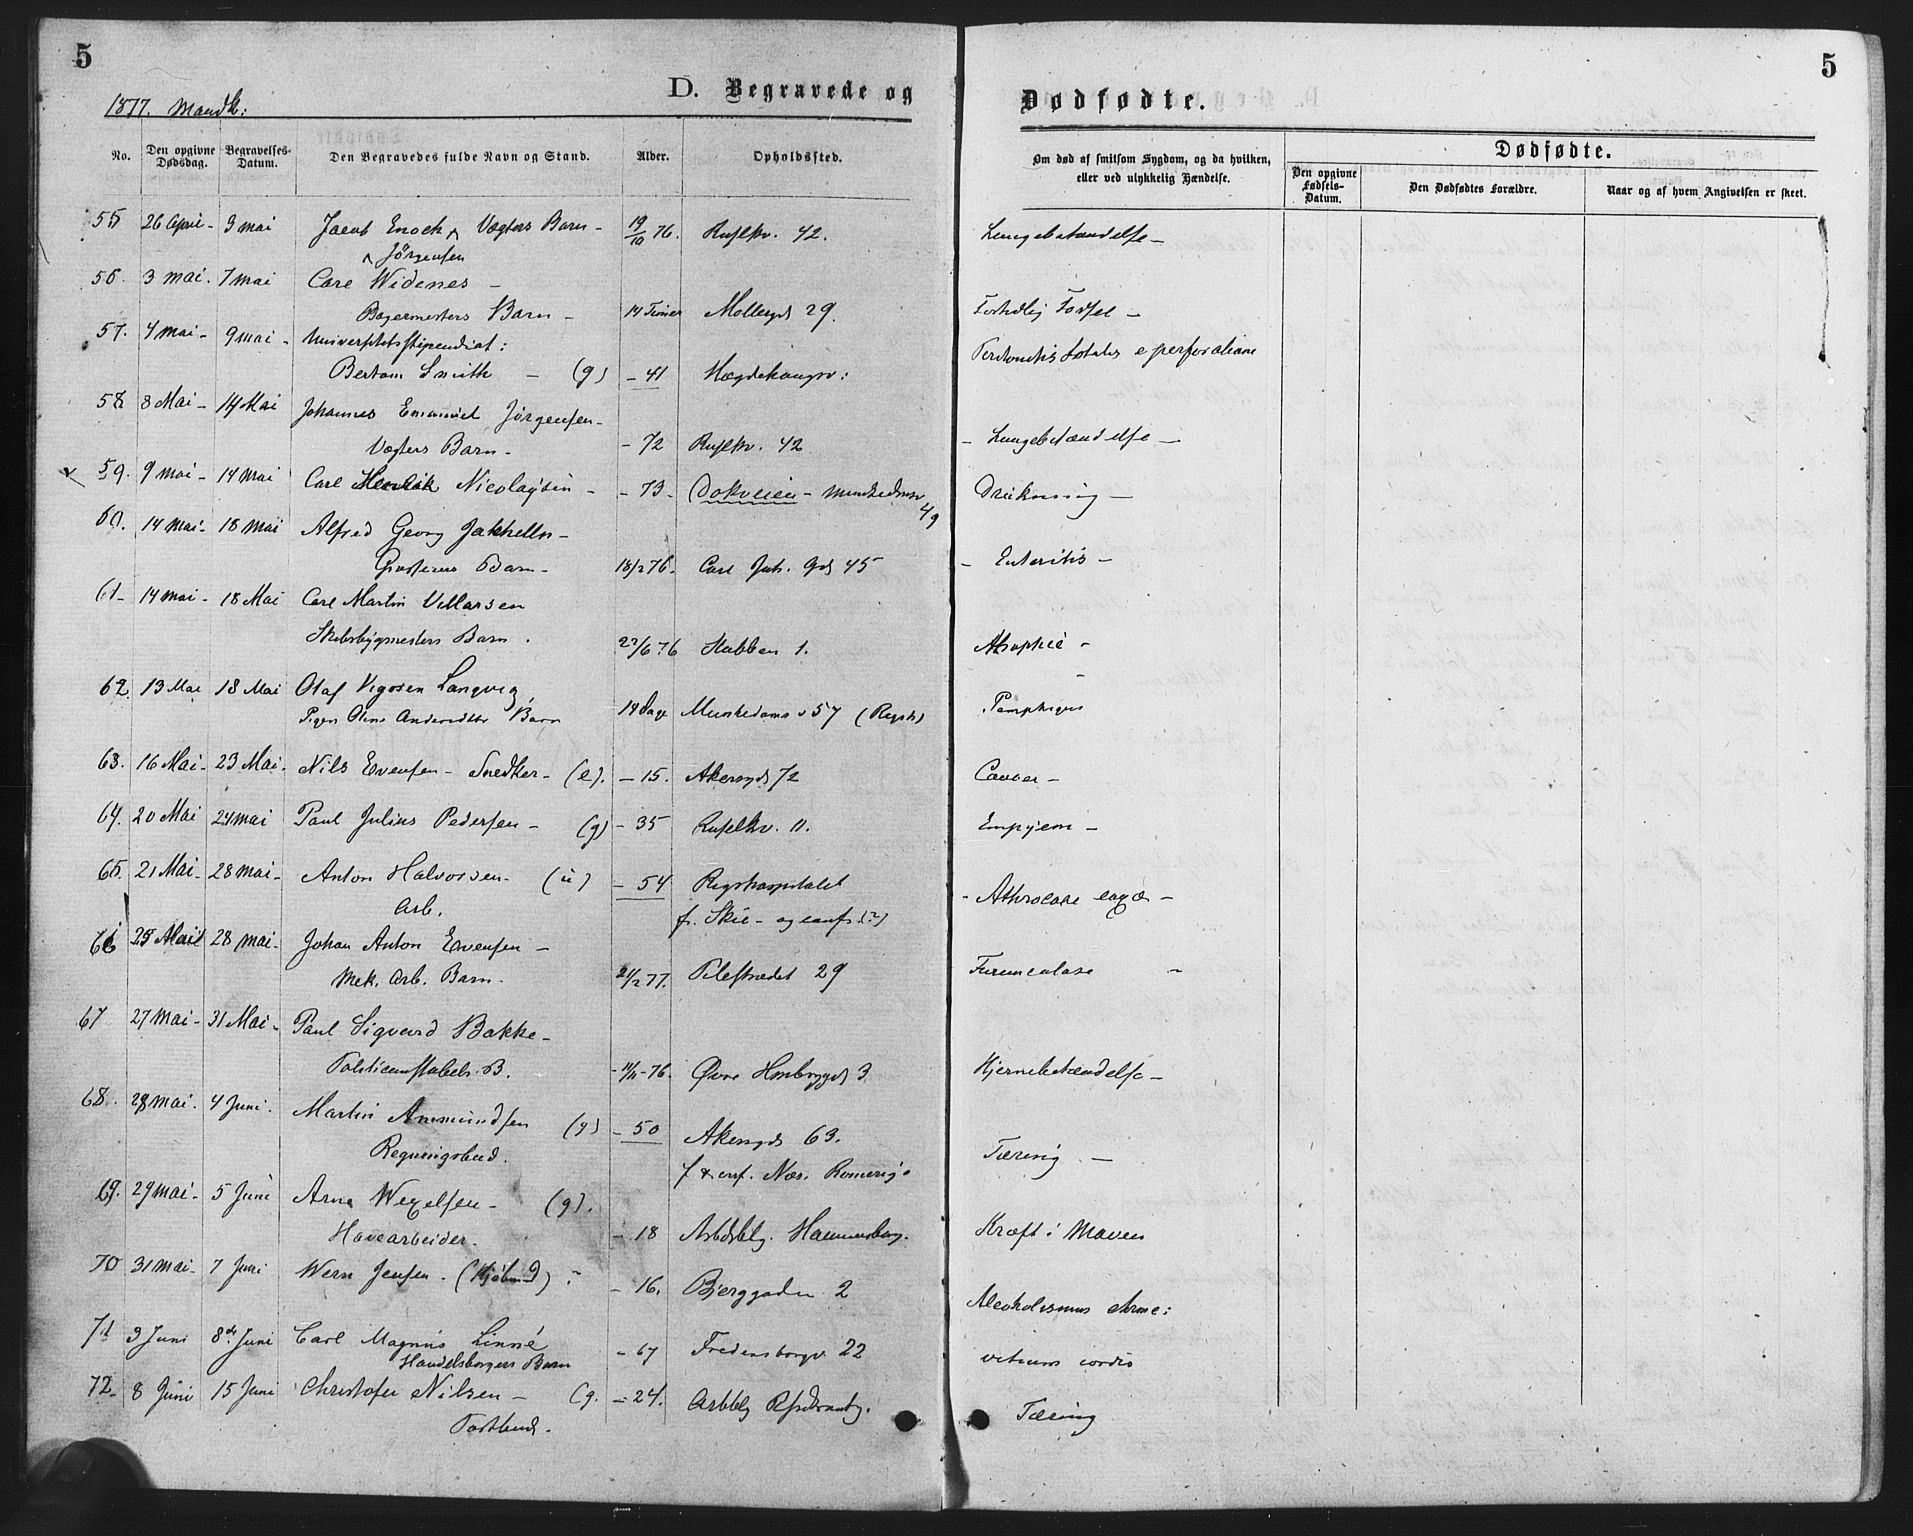 5
5
D. Begravede og
Dødfødte.
1877. Mandk:
No.
Den opgivne Dødsdag.
Begravelses-Datum.
Den Begravedes fulde Navn og Stand.
Alder.
Opholdssted.
Om død af smitsom Sygdom, og da hvilken, eller ved ulykkelig Hændelse.
Dødfødte.
Den opgivne Fødsels-Datum.
Den Dødfødtes Forældre.
Naar og af hvem Angivelsen er skeet.
55 26 April - 3 mai Jacob Enoch ^ Vægters Barn - 19/10 76. Ruselkv. 42. Lungebetændelse -
^ Jørgensen
56. 3 mai. 7 mai Carl Widenes -
Bagermesters Barn - 14 Timer Møllergd 29. Forhdlig Fødsel -
57. 4 mai - 9 mai - Universitetsstipendiat:
Smith - (g) - 41 Hægdehaugsv:
58. 8 Mai - 14 Mai Johannes Emanuel Jørgensen -
Vægters Barn - - 72 Ruselkv. 42 - Lungebetændelse -
59. 9 mai - 14 mai Carl Henrik Nicolaysen - - 73 - Dokveien - 49 Drukning -
60. 14 mai - 18 mai Alfred Georg
Barn - 18/2 76. Carl Joh. Gd 45 - Enteritis -
61 - 14 mai - 18 Mai Carl Martin
Skibsbygmesters Barn. 27/6 76 Stubben 1. Atrophie -
62. 13 Mai 18 Mai Olaf Langvig
Pigen Barn 14 Dage Munkedams v 57 Pemphigus
63. 16 Mai - 23 Mai. Nils Evensen - Snedker - (e). - 15. Akersgd 72 Cancer -
64. 20 Mai 24 mai Paul Julius Pedersen - (g) - 35 Ruselkv. 11. Empyem -
65. 21 Mai - 28 mai - Anton Halvorsen - (u) - 54 Rigshospitalet
Arb. f. Skie -
66 25 Mai 28 mai - Johan Anton Evensen -
Mek. Arb. Barn. 21/2 77. Pilestrædet 29 Furunculose -
67 27 mai - 31 Mai - Paul Sigvard Bakke -
B. - 11/11 - 76. Øvre 3 Hjernebetændelse -
68. 28 mai. 4 Juni. Martin Ammundsen (g) - 50 Akersgd 63.
Regningsbud. Næs. Romerig. Tæring -
69. 29 mai - 5 Juni Arne Wexelsen - (g).
Havearbeider. - 18 Hammersborg. Kræft i Maven
70 31 mai - 7 Juni Jensen. - 16. Bjerggaden 2 Alcoholismus
71 3 Juni 8de Juni Carl Magnus Linné
Handelsborgers Barn - 67 Fredensborgv 22 vitium cordis
72 - 8 Juni 15 Juni Christofer Nilsen - (g. - 24. Tæring
Postbud.